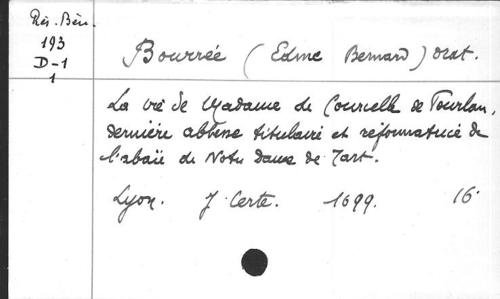 Rés. Bén.
193
D-1
1
Bourrée (Edme Bernard) orat.
La vie de Madame de Courcelle de Pourlan,
dernière abbesse titulaire et réformatrice de
l'abaïe de Notre Dame de Tart.
Lyon. J. Certe. 1699. 16°